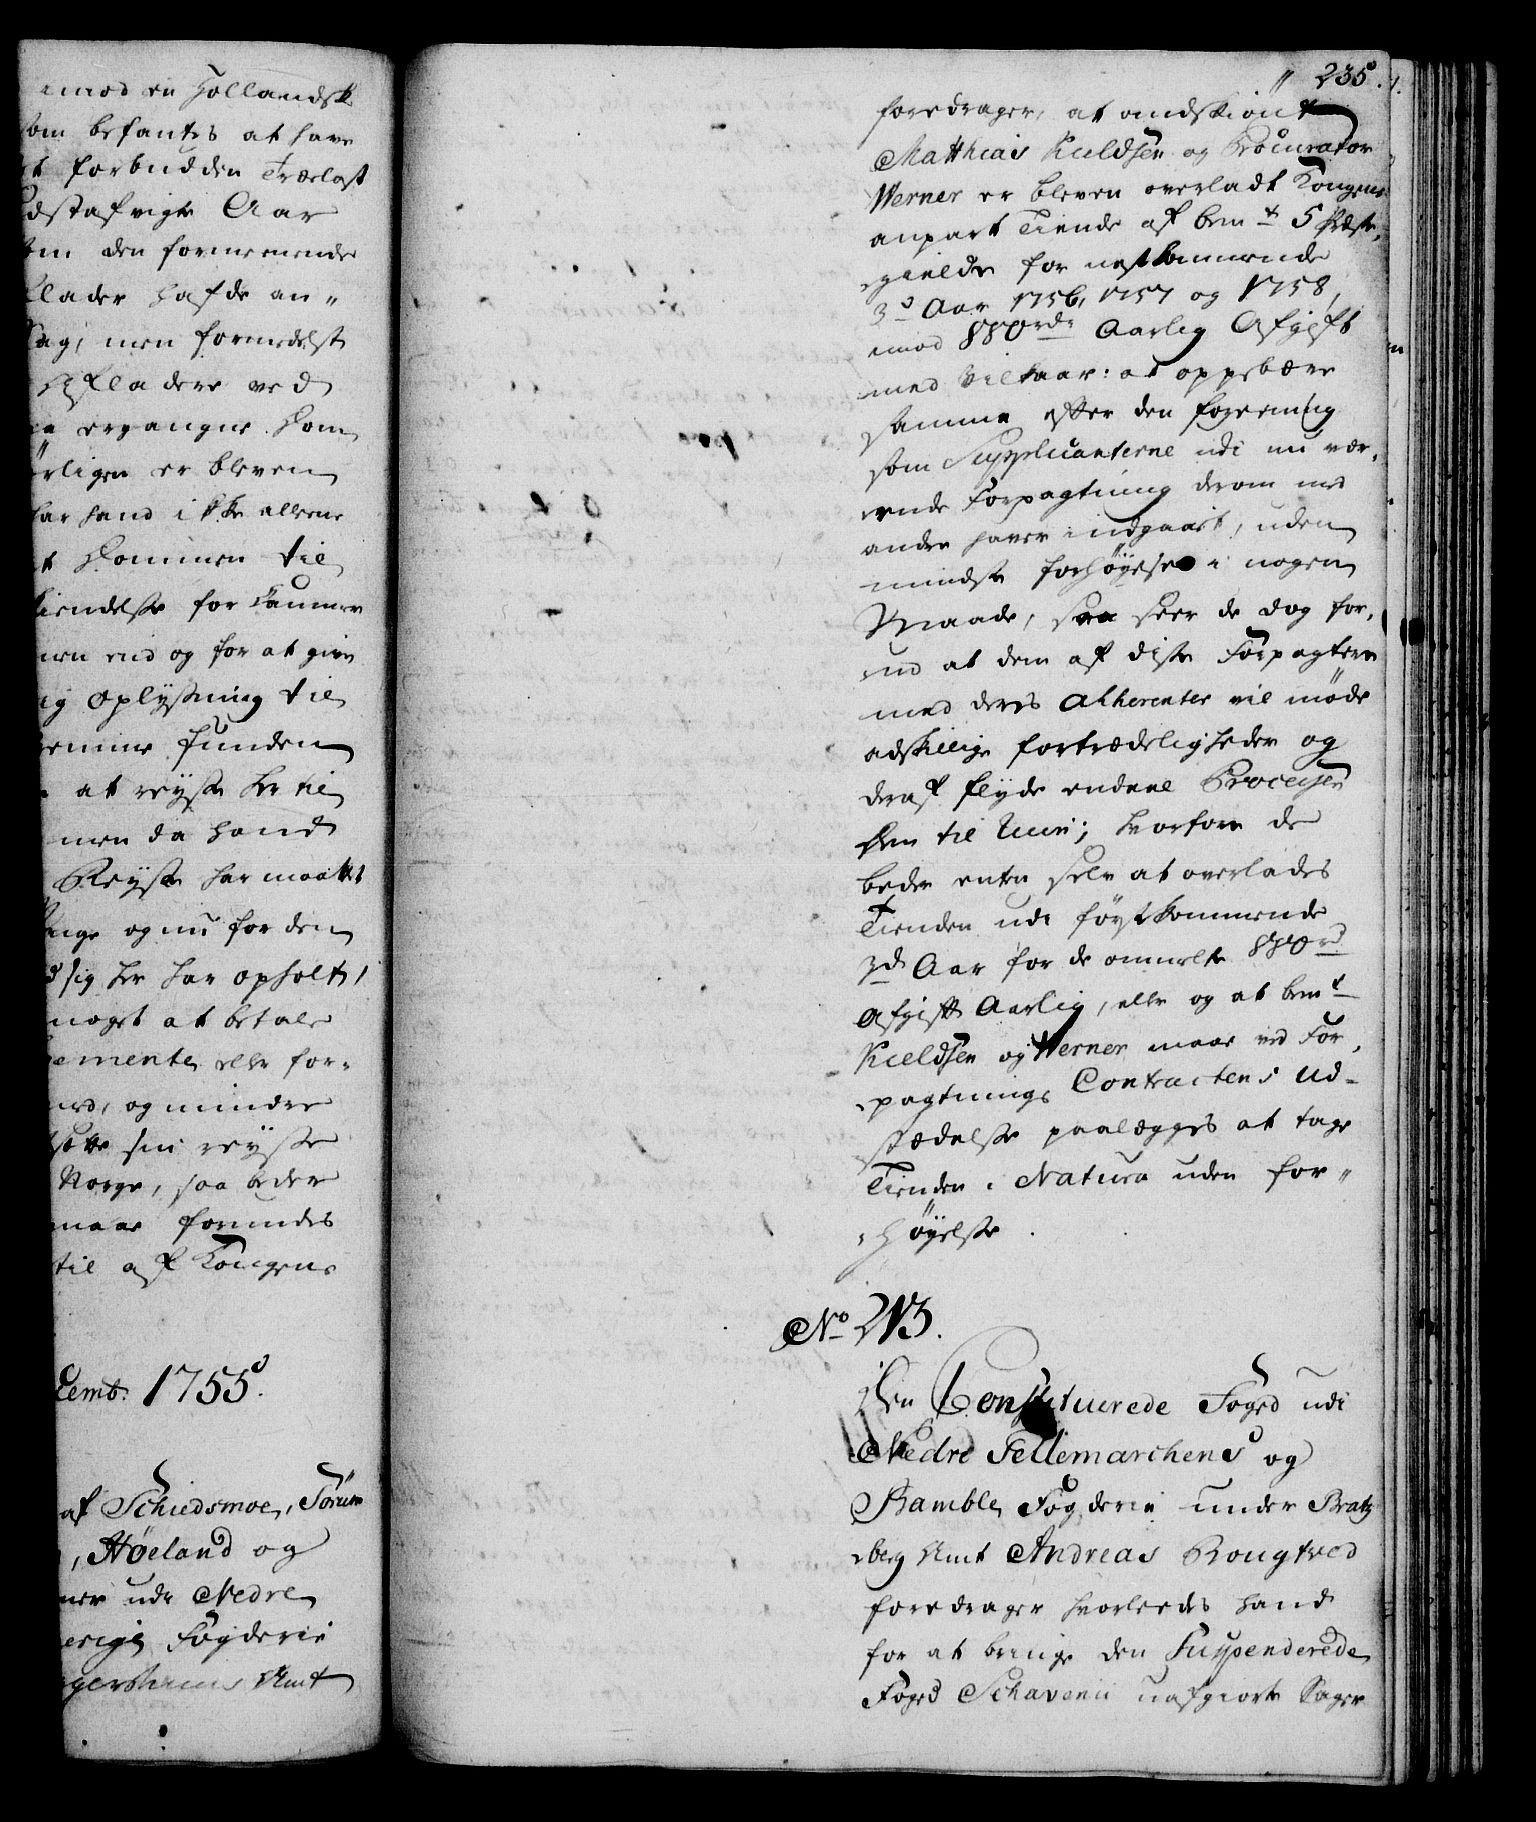 imod en Hollandsk
som befantes at have
forbudden Trælast
Aar
den formeenende
hafde an„
Sag, men formedelst
ved
ergangne Dom,
er bleven
har hand ikke alleene
Dommen til
kiendelse for Cammer
men end og for at give
Oplysning til
funden
at reyse her til
men da hand
Reyse har maattet
og nu for den
sig her har opholt,
noget at betale
ementer eller for„
og mindre
sætte sin reyse
Norge, saa beder
maae forundes
til af Kongens
cemb. 1755.
af Schiedsmoe, Sørum
, Høeland og
ner udi Nedre
erige Fogderie
gershuus Amt
235.
foredrager, at omdskiønt
Matthias Kieldsen og Procurator
Werner er bleven overladt Kongens
anpart Tiende af bemte 5 Præste„
gielde for nestkommende
3de Aar 1756, 1757 og 1758,
imod 880 rdr Aarlig Afgift
med Vilkaar: at oppebære
samme efter den foreening
som Supplicanterne udi nu vær„
ende Forpagtning derom med
andre haver indgaaet, uden
mindste forhøyelse i nogen
Maade, saa seer de dog for„
ud at dem af disse Forpagtere
med deres Atherenter vil møde
adskillige fortrædeligheder og
deraf flyde endeel Processer
dem til Ruin; hvorfore de
beder enten selv at overlades
Tienden udi førstkommende
3de Aar for de ommelte 880 rd
Afgift Aarlig, eller og at bemte
Kieldsen og Werner maae ved For„
pagtnings Contractens Ud„
stædelse paalægges at tage
Tienden i Natura uden for„
høyelse.
No 213.
Den Constituerede Foged udi
Nedre Tellemarchens og
Bamble Fogderie under Bratz„
berg Amt Andreas Rougtved
foredrager hvorleedes hand
for at bringe den Suspenderede
Foged Schavenii uafgiorte Sager